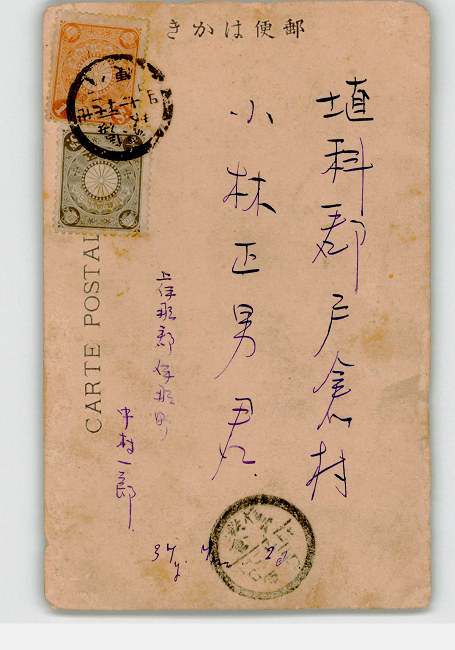 郵便はかき
CARTE POSTAL
埴科郡戸倉村
小林正男君
上伊那郡伊那町
中村一郎